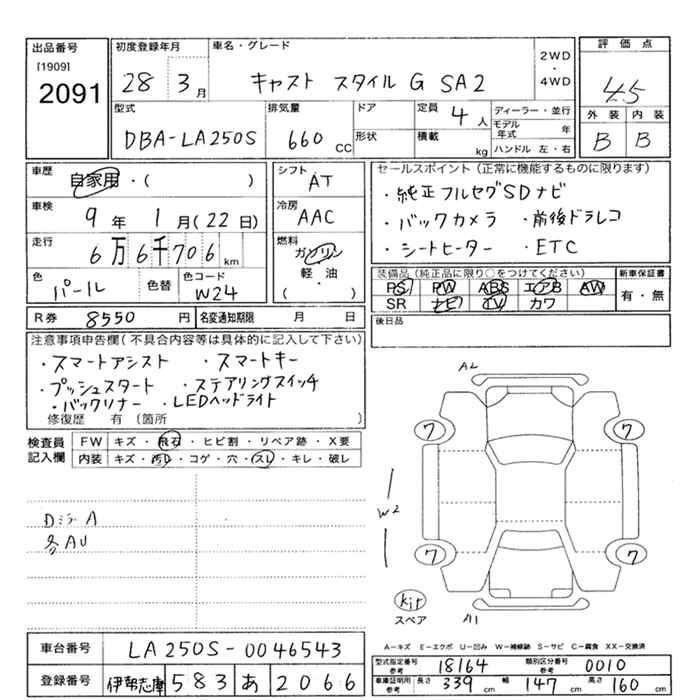 出品番号
[1909]
2091
初度登録年月
28 3月
車名・グレード
キャスト スタイル G SA2
2WD
・
4WD
評価点
4.5
外装 内装
B B
型式
DBA-LA250S
排気量
660 CC
ドア
形状
定員
4人
積載
kg
ディーラー・並行
モデル年式 年
ハンドル 左・右
車歴
自家用・( )
車検
9年 1月(22日)
走行
6万6千706km
色
パール
色替
色コード
W24
シフト
AT
冷房
AAC
燃料
ガソリン
軽・油
( )
セールスポイント(正常に機能するものに限ります)
・純正フルセグSDナビ
・バックカメラ ・前後ドラレコ
・シートヒーター ・ETC
装備品(純正品に限り○をつけてください)
PS PW ABS エアB AW
SR ナビ TV カワ
新車保証書
有・無
R券 8550円
名変通知期限 月 日
後日品
注意事項申告欄(不具合内容等は具体的に記入して下さい)
・スマートアシスト ・スマートキー
・プッシュスタート ・ステアリングスイッチ
・バックソナー ・LEDヘッドライト
修復歴 有(箇所
検査員記入欄
FW キズ・飛石・ヒビ割・リペア跡・X要
内装 キズ・汚レ・コゲ・穴・スレ・キレ・破レ
Dミラー A
各AU
A2
7 7
W2
7 7
kit
スペア
A1
A－キズ E－エクボ U－凹み W－補修跡 S－サビ C－腐食 XX－交換済
車台番号 LA250S-0046543
登録番号 伊勢志摩 583 あ 2066
型式指定番号 参考 18164
類別区分番号 参考 0010
車庫証明用 参考 長さ 339cm 幅 147cm 高さ 160cm